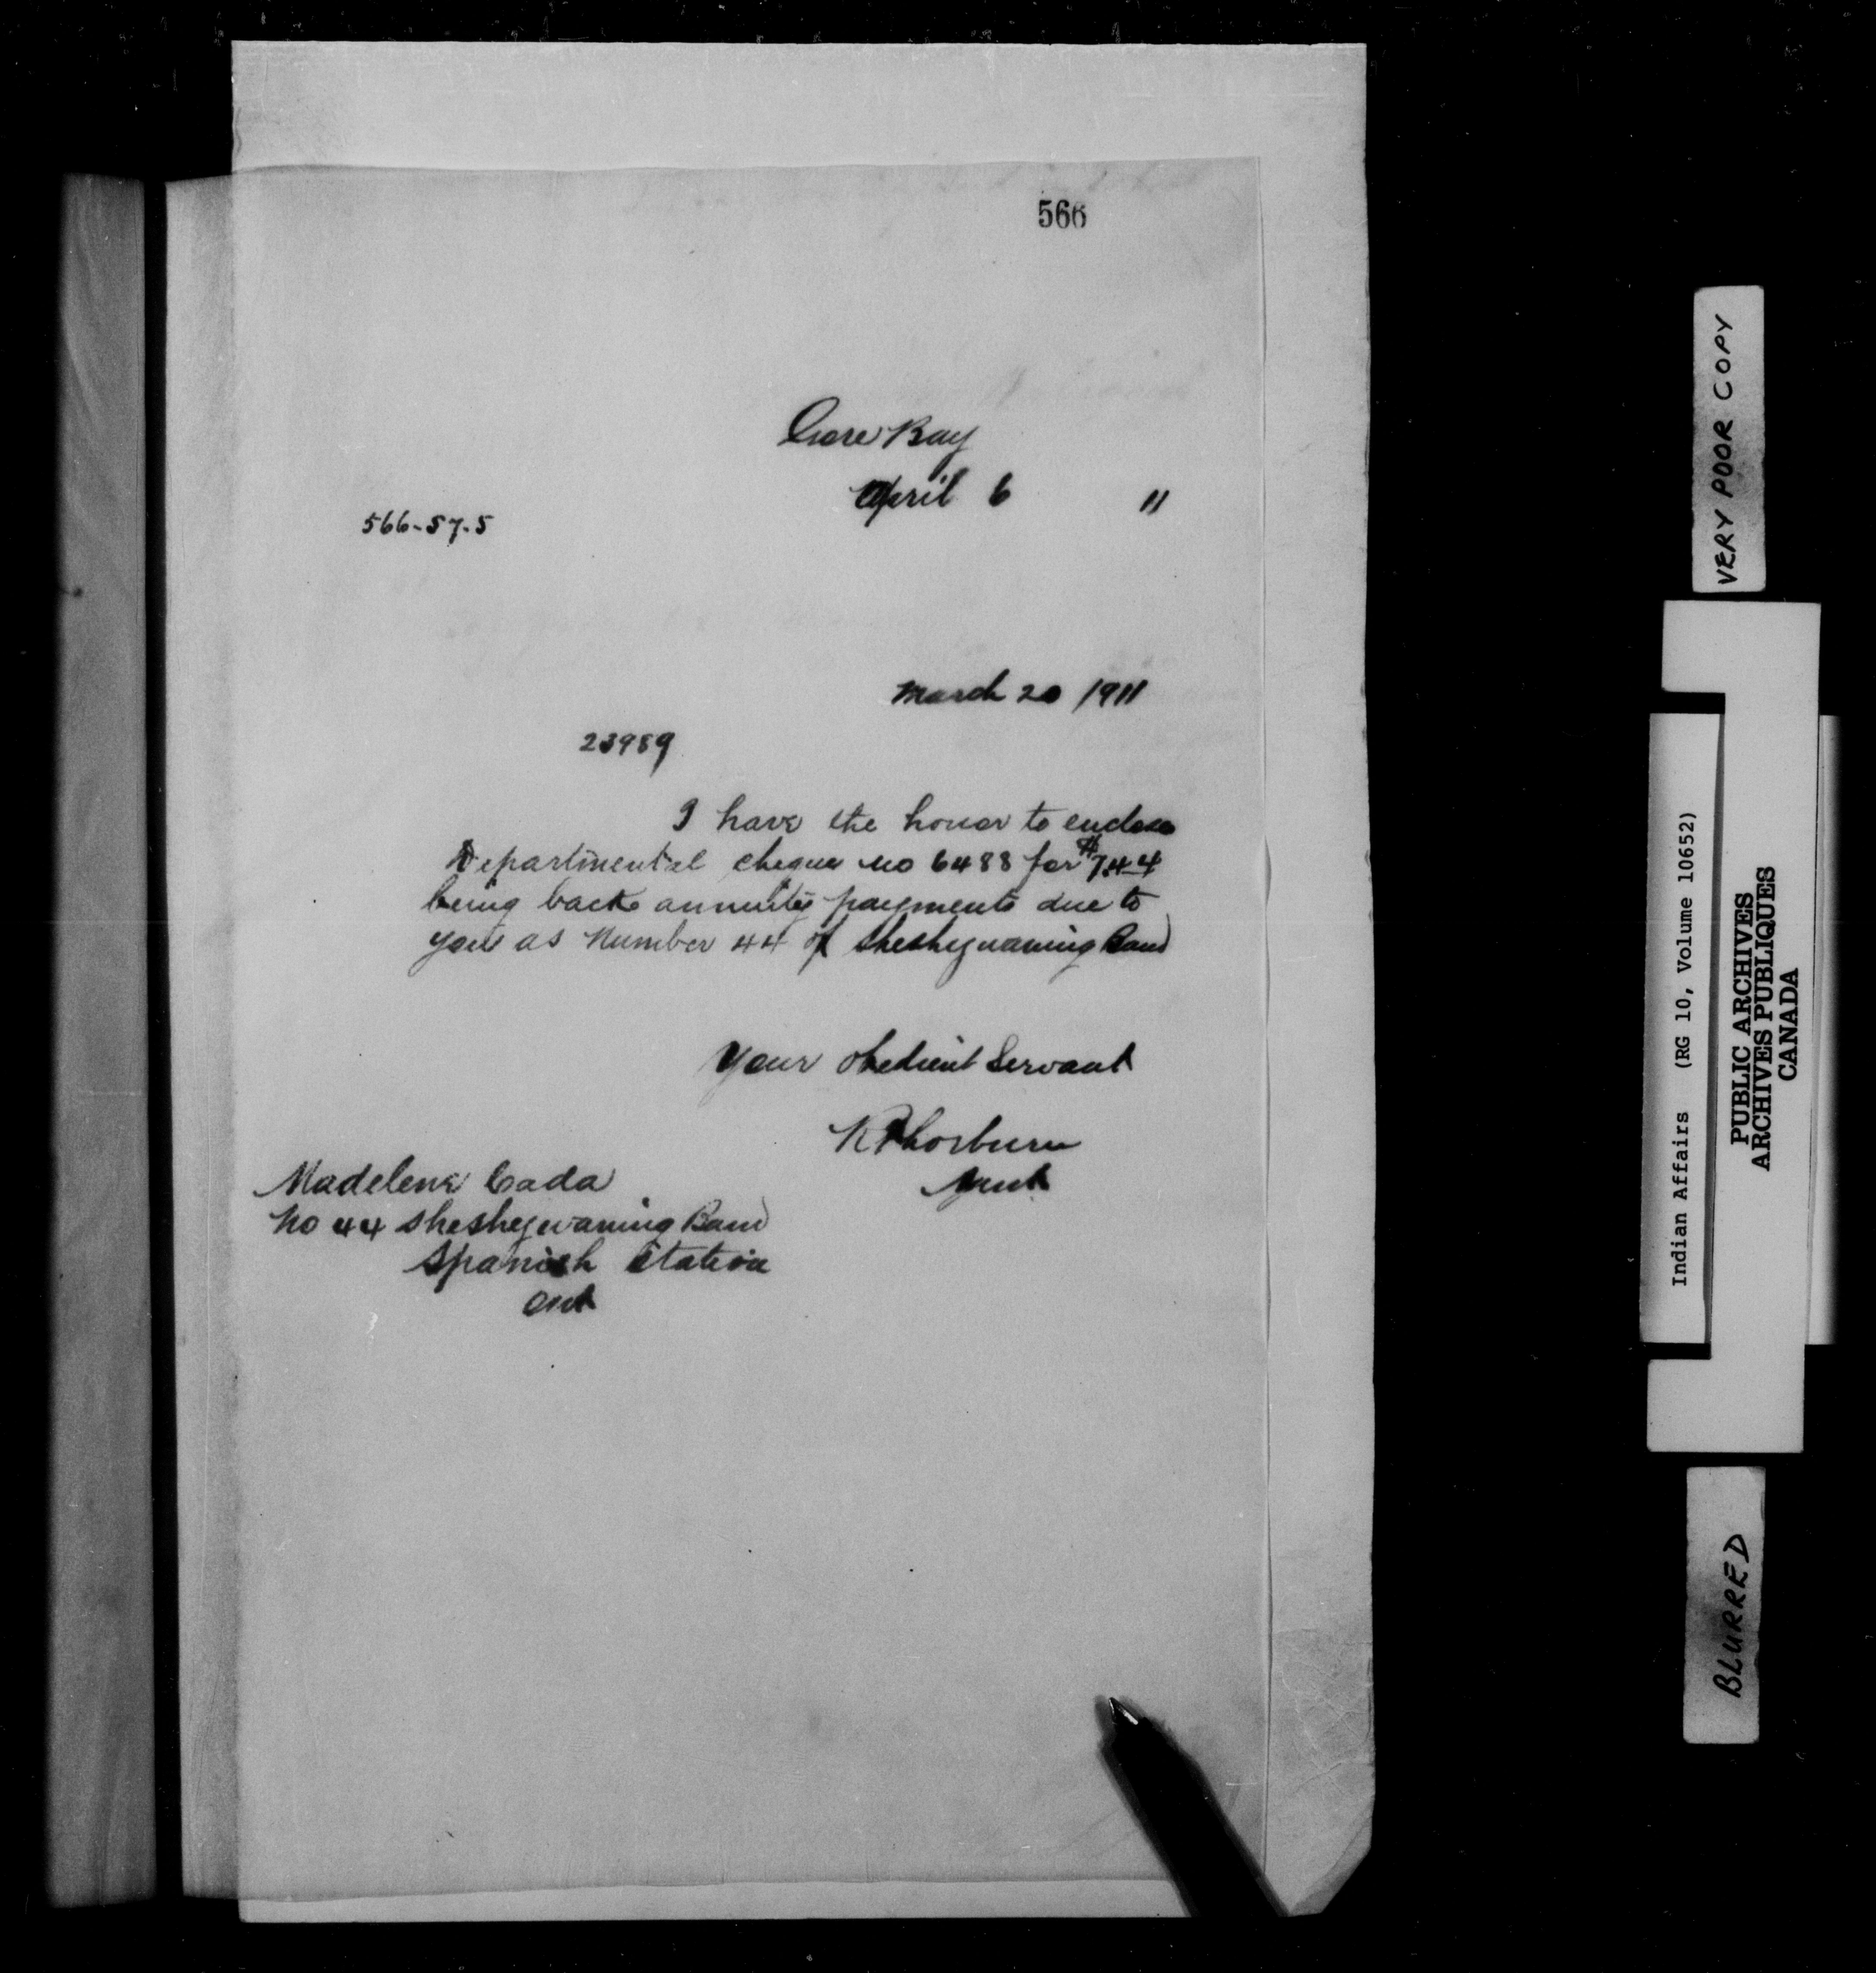 566
Gore Bay
April 6 11
566-57-5
March 20 1911
23989
I have the honor to enclose
Departmental cheque No 6488 for $7.44
being back annuity payments due to
you as Number 44 of Sheshegwaning Band
Your Obedient Servant
R Thorburn
Agent
Madelene Cada
No 44 Sheshegwaning Band
Spanish Station
Ont
VERY POOR COPY
Indian Affairs (RG 10, Volume 10652)
PUBLIC ARCHIVES
ARCHIVES PUBLIQUES
CANADA
BLURRED